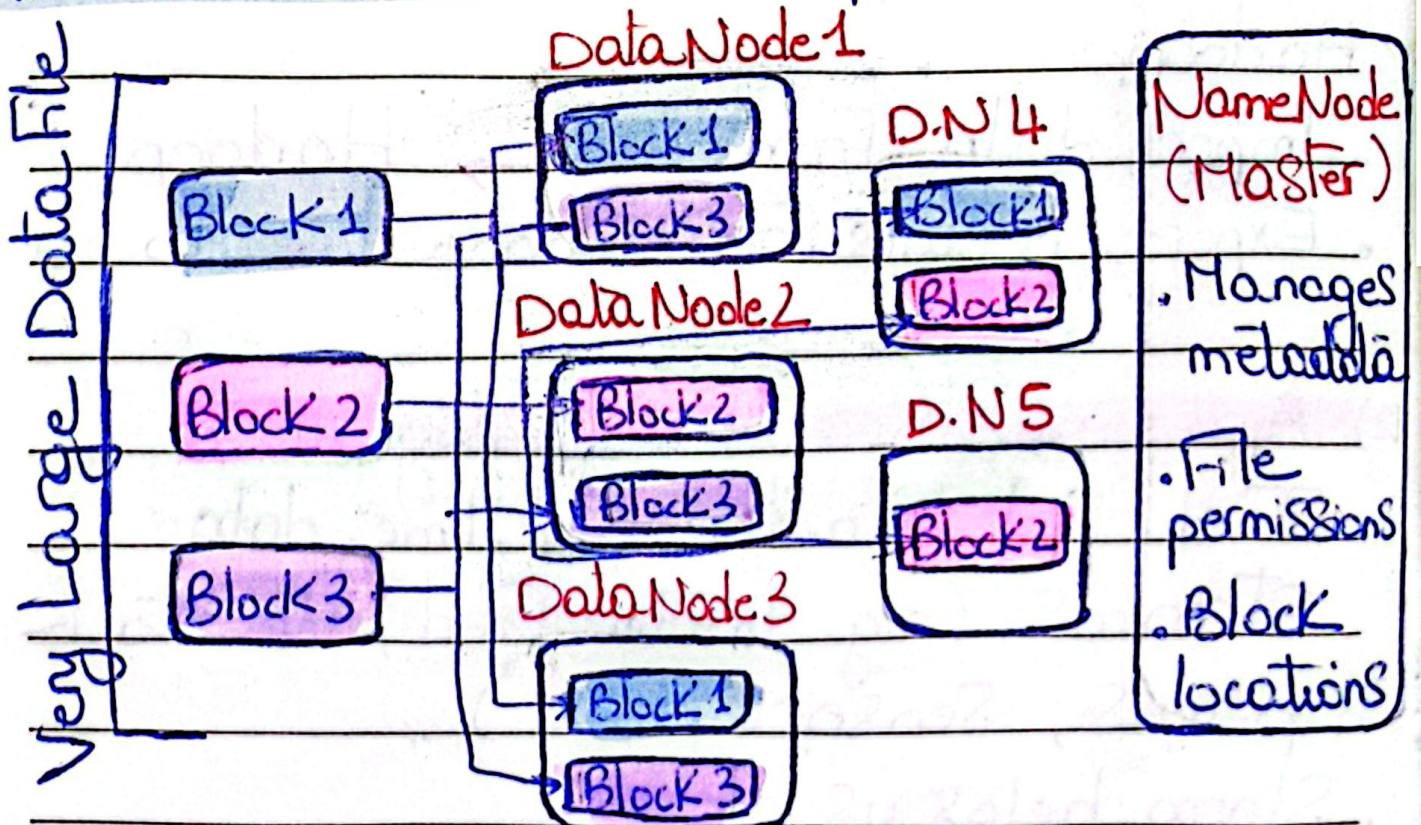 Very Large Data File
Block 1
Block 2
Block 3
DataNode1
Block 1
Block 3
DataNode2
Block 2
Block 3
DataNode3
Block 1
Block 3
D.N 4
Block 1
Block 2
D.N 5
Block 2
NameNode
(Master)
. Manages
metadata
. File
permissions
. Block
locations